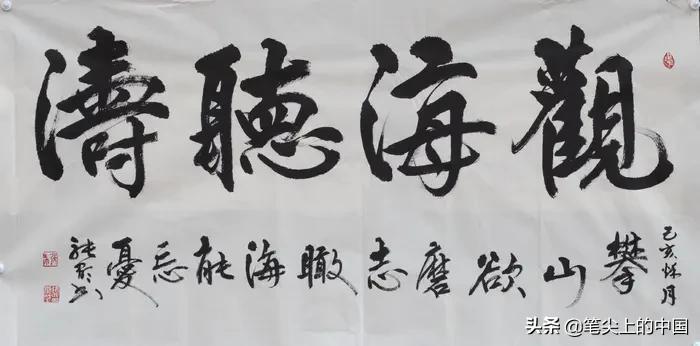 觀海聽濤
己亥秋月
攀山欲磨志瞰海能忘憂
头条 @笔尖上的中国